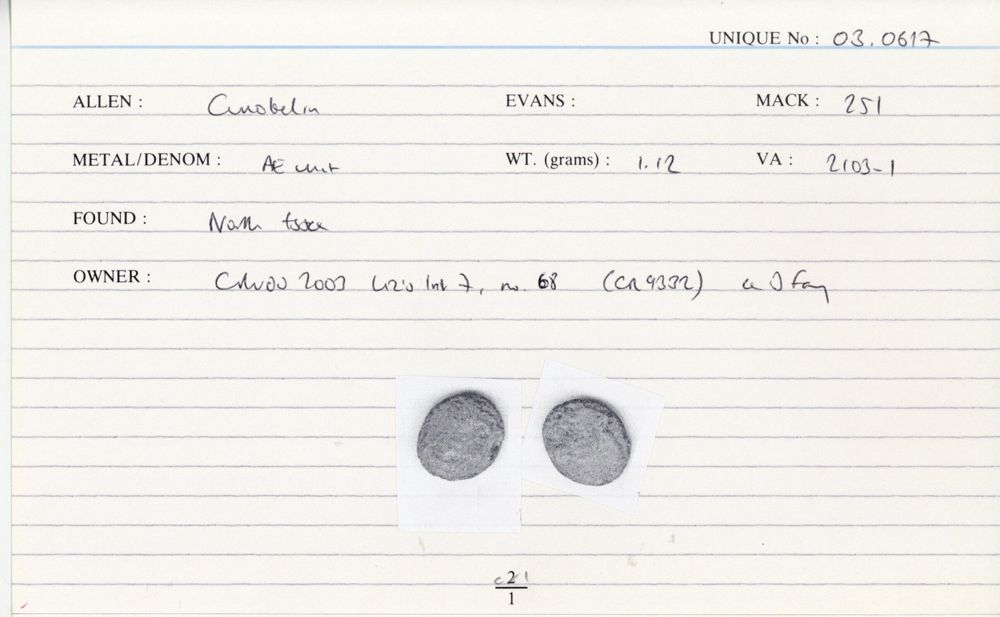 UNIQUE No : 03.0617
ALLEN : Cunobelin EVANS : MACK : 251
METAL/DENOM : AE unit WT. (grams) : 1.12 VA : 2103-1
FOUND : North Essex
OWNER : 2003 7, no. 68 (CR 9332)
2
1